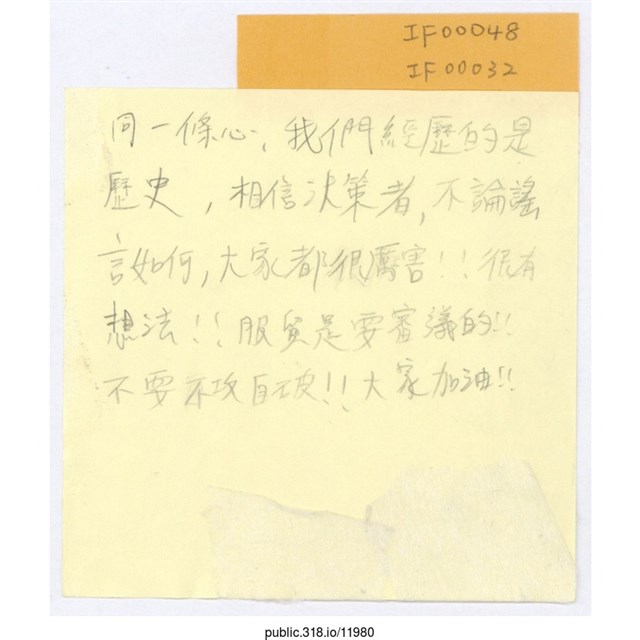 IF00048
IF00032
同一條心，我們經歷的是
歷史，相信決策者，不論謠
言如何，大家都很厲害！！很有
想法！！服貿是要審議的！！
不要不攻自破！！大家加油！！
public.318.io/11980